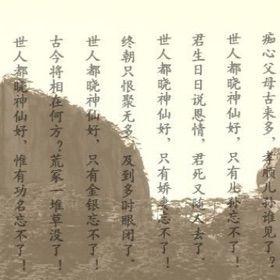 世人都晓神仙好，惟有功名忘不了！
古今将相在何方？荒冢一堆草没了！
世人都晓神仙好，只有金银忘不了！
终朝只恨聚无多，及到多时眼闭了．
世人都晓神仙好，只有娇妻忘不了！
君生日日说恩情，君死又随人去了．
世人都晓神仙好，只有儿孙忘不了！
痴心父母古来多，孝顺儿孙谁见了？